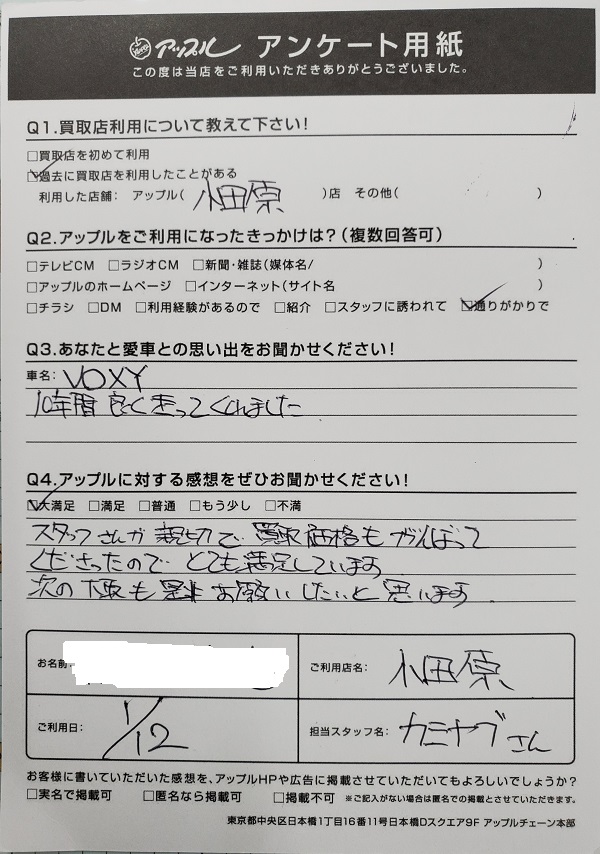 アップル アンケート用紙
この度は当店をご利用いただきありがとうございました。
Q1.買取店利用について教えて下さい!
□買取店を初めて利用
☑過去に買取店を利用したことがある
利用した店舗: アップル( 小田原 )店 その他( )
Q2.アップルをご利用になったきっかけは?(複数回答可)
□テレビCM □ラジオCM □新聞・雑誌(媒体名/ )
□アップルのホームページ □インターネット(サイト名 )
□チラシ □DM □利用経験があるので □紹介 □スタッフに誘われて ☑通りがかりで
Q3.あなたと愛車との思い出をお聞かせください!
車名: VOXY
10年間 良く走ってくれました
Q4.アップルに対する感想をぜひお聞かせください!
☑大満足 □満足 □普通 □もう少し □不満
スタッフさんが親切で 買取価格もがんばって
くださったので とても満足しています
次の も是非お願いしたいと思います
お名前:
ご利用店名: 小田原
ご利用日: 1/12
担当スタッフ名: カミヤブさん
お客様に書いていただいた感想を、アップルHPや広告に掲載させていただいてもよろしいでしょうか?
□実名で掲載可 □匿名なら掲載可 □掲載不可 ※ご記入がない場合は匿名での掲載とさせていただきます。
東京都中央区日本橋1丁目16番11号日本橋Dスクエア9F アップルチェーン本部